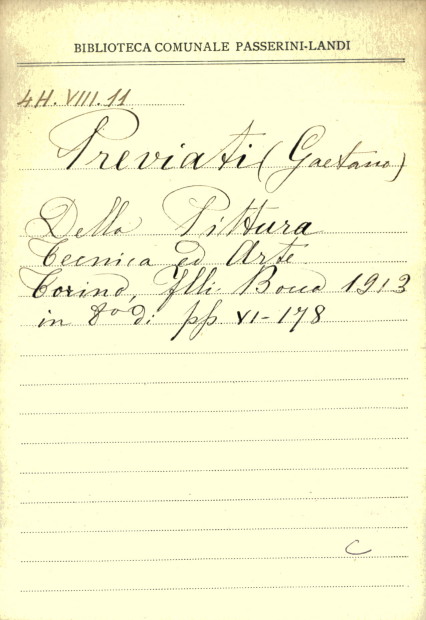 BIBLIOTECA COMUNALE PASSERINI-LANDI
4H. VIII. 11
Previati (Gaetano)
Della Pittura
Tecnica ed Arte
Torino, Flli Bocca 1913
in 8° di pp XI-178
C